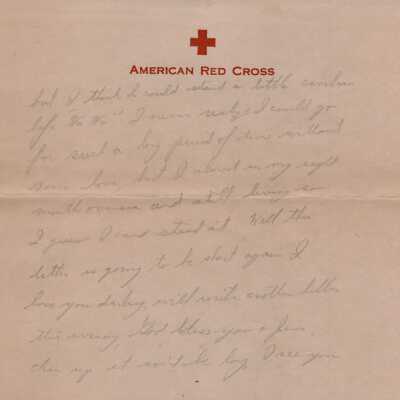 AMERICAN RED CROSS
but I think I could stand a little
life Ha Ha" I never realized I could go
for such a long period of time without
some love, but I about in my eight
month overseas and still living so
I guess I can stand it. Well this
letter is going to be short again I
love you darling will write another letter
this evening God bless you
chin up it won't be long I see you